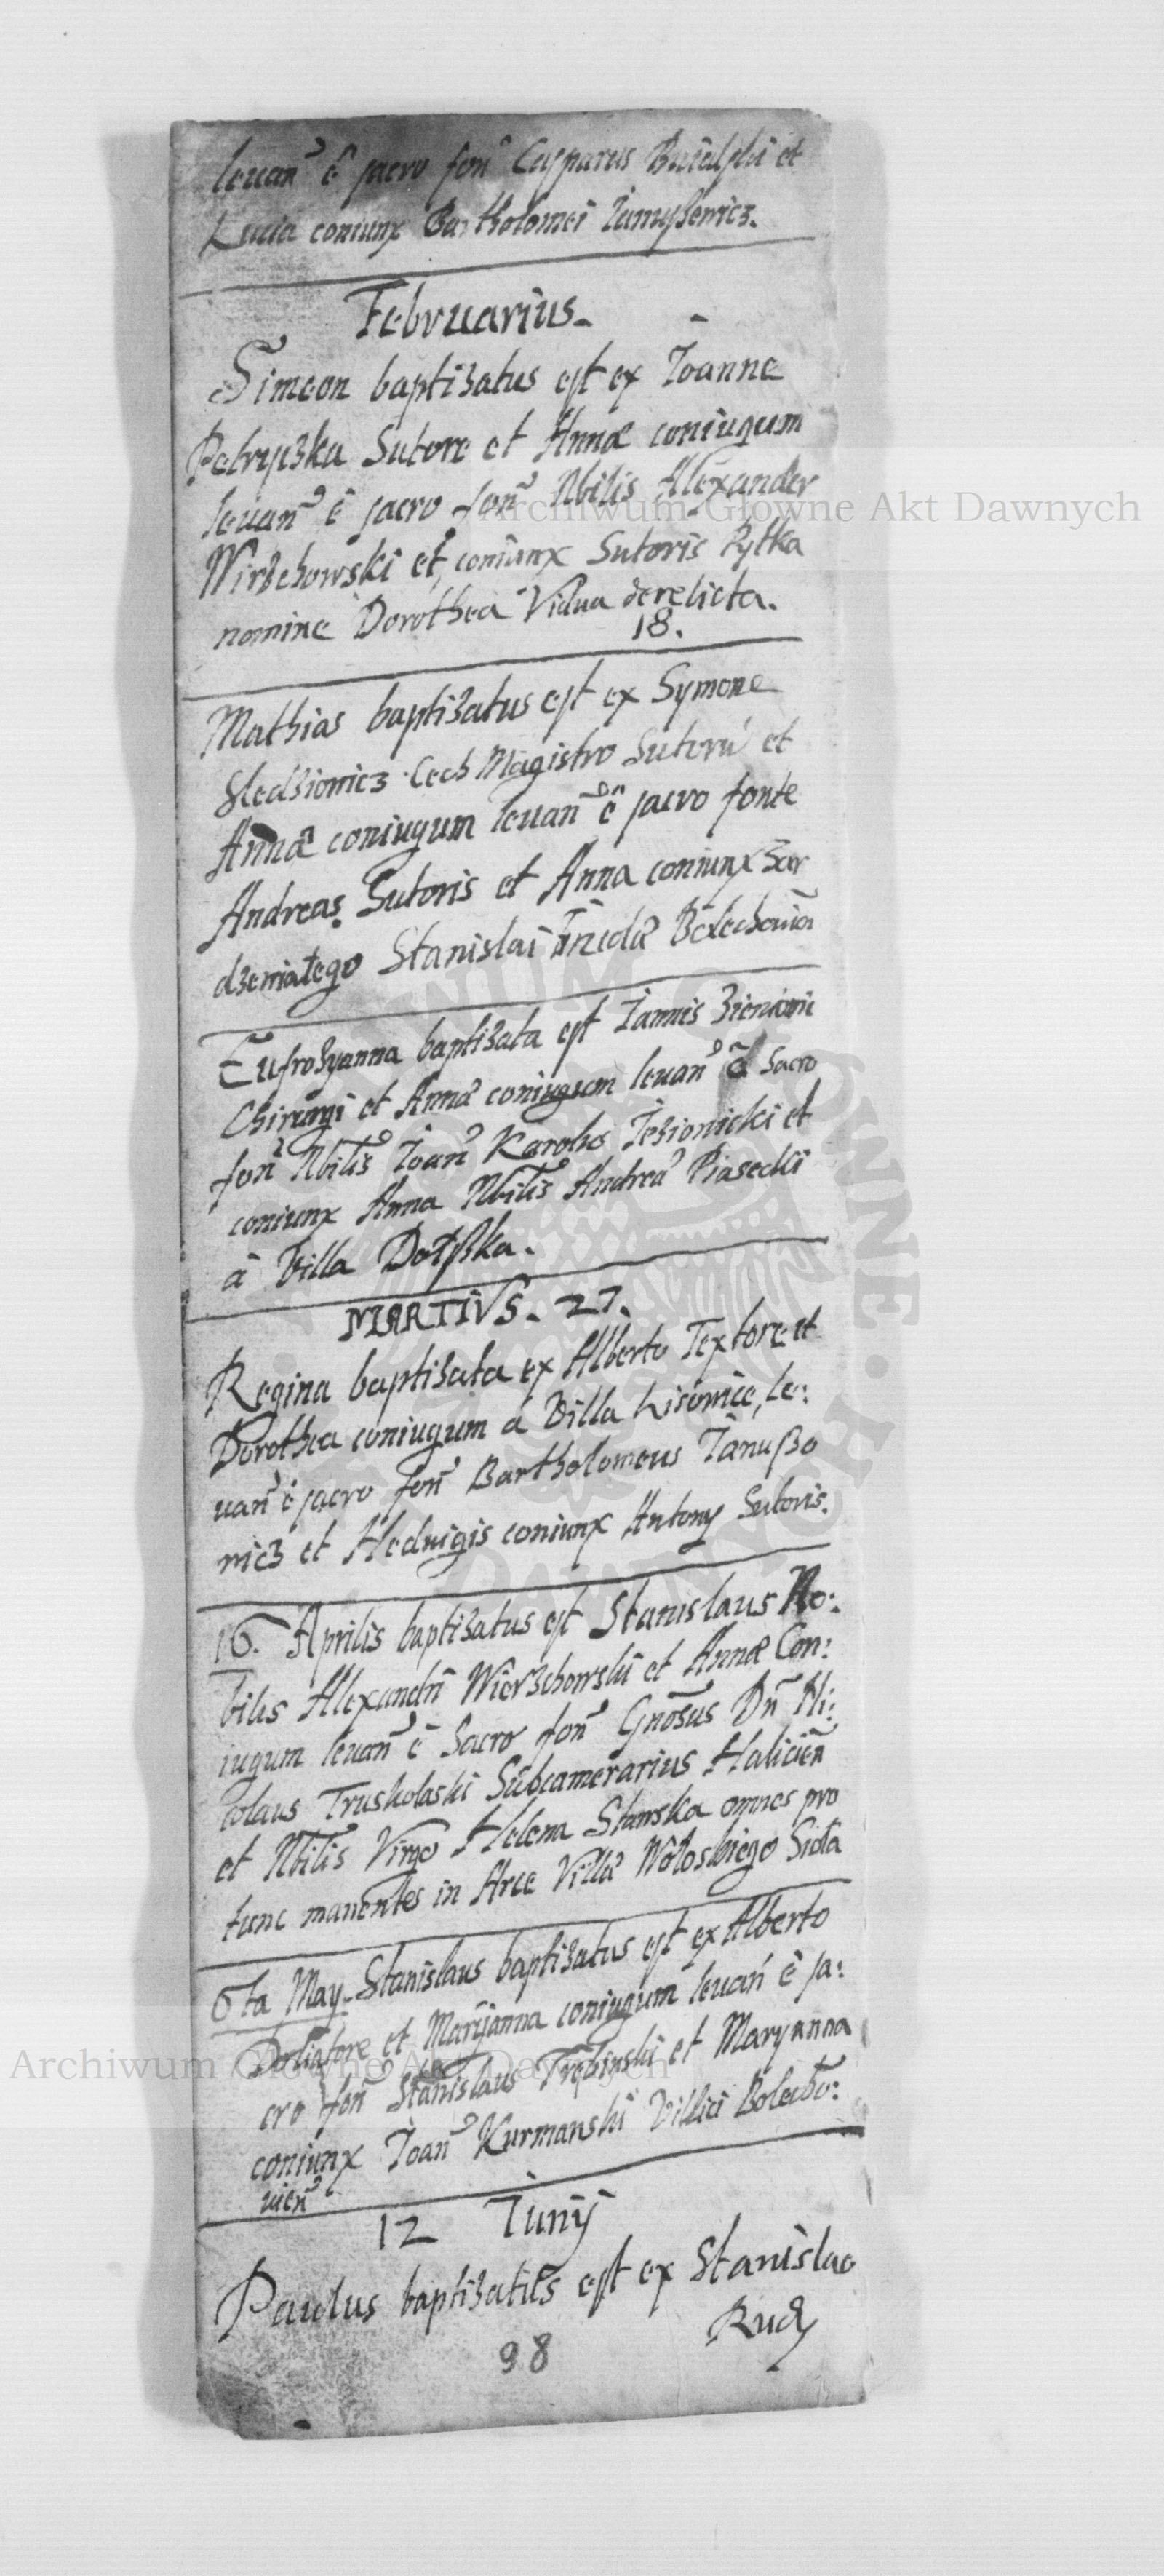 leuan̄ ē sacro fon̄ Casparus et
Lucia coniunx Bartholomei Janußewicz.
Februarius.
Simeon baptizatus est ex Joanne
Petryczka Sutore et Annæ coniugum
leuan̄ ē sacro fon̄ Nbilis Alexander
Wirzchowski et coniunx Sutoris Pytka
nomine Dorothea Vidua derelicta.
18.
Mathias baptizatus est ex Symone
Sledziowicz Cech Magistro Sutorū et
Annæ coniugum leuan̄ ē sacro fonte
Andreas Sutoris et Anna coniunx Szer
dzeniatego Stanislai
Eufrosyanna baptizata est Jannis
Chirurgi et Annæ coniugum leuan̄ ē Sacro
fon̄ Nbilis Joan̄ Karolus Jezionicki et
coniunx Anna Nbilis Andreæ Piasecki
à Villa Dołßka.
MARTIVS. 27.
Regina baptizata ex Alberto Textore et
Dorothea coniugum à Villa Lisowice, le:
uan̄ ē sacro fon̄ Bartholomeus Janußo
wicz et Heduigis coniunx Antony Sutoris.
16. Aprilis baptizatus est Stanislaus No:
bilis Alexandri Wierzchowski et Annæ Con:
iugum leuan̄ ē Sacro fon̄ Gnosus Dn̄ Ni:
colaus Truskolaski Subcamerarius Halicien̄
et Nbilis Virgo Helena Stanska omnes pro
tunc manentes in Arce Villæ Wołoskiego Sioła
6ta May. Stanislaus baptizatus est ex Alberto
Doliatore et Maryanna coniugum leuan̄ ē sa:
cro fon̄ Stanislaus Trębinski et Maryanna
coniunx Joan̄ Kurmanski Villici Bolecho:
uien̄
12 Junij
Paulus baptizatus est ex Stanislao
Rudy
98
Archiwum Główne Akt Dawnych
Archiwum Główne Akt Dawnych